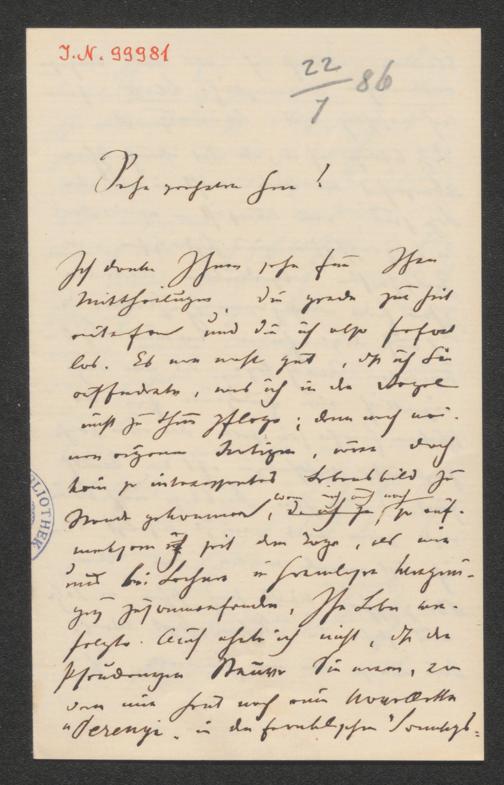 J.N. 99981
22/7 86
Sehr geehrter Herr!
Ich danke Ihnen sehr für Ihre
Mittheilungen, die grade zur Zeit
und die ich also sofort
las. Es war recht gut, daß ich Sie
, was ich in der Regel
nicht zu thun pflege; denn nach mei-
nen eigenen Notizen, wäre doch
kein so interessantes Lebensbild zu
Stande gekommen, so auf-
merksam ich seit dem Tage, als wir
uns bei in Vereini-
gung zusammenfanden, Ihr Leben ver-
folgte. Auch ahnte ich nicht, daß der
Pseudonym Sie waren, von
dem mir heut noch eine Novellette
"Perenyi" in der Sonntags-
BIBLIOTHEK